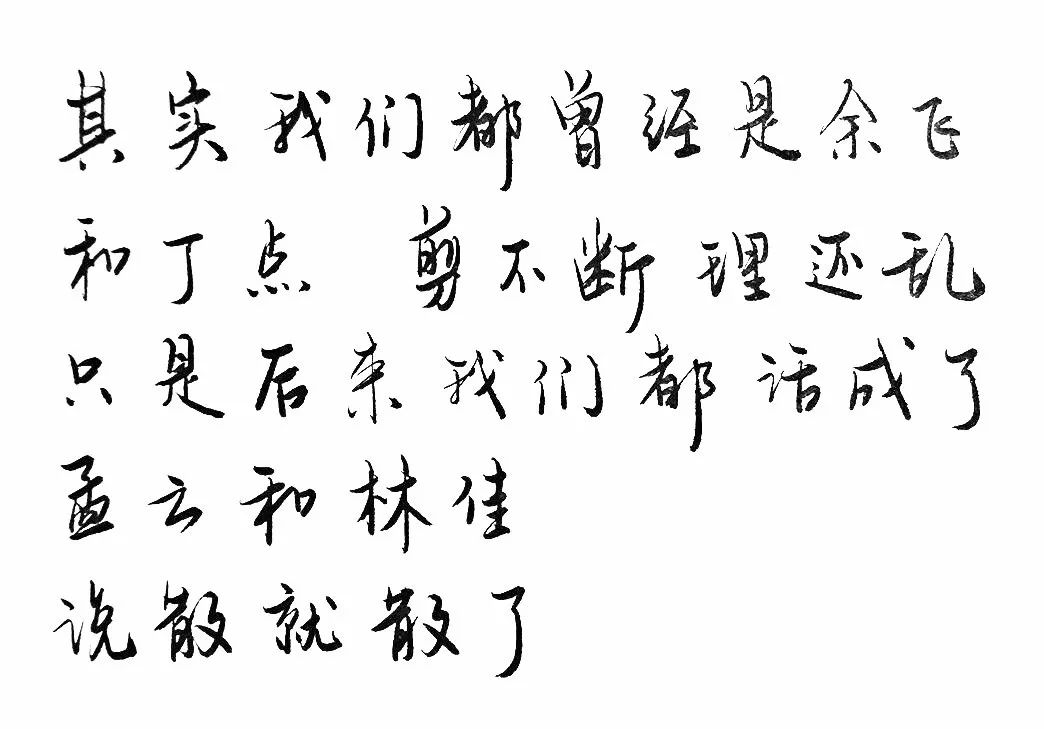 其实我们都曾经是余飞
和丁点 剪不断 理还乱
只是后来我们都活成了
孟云和林佳
说散就散了